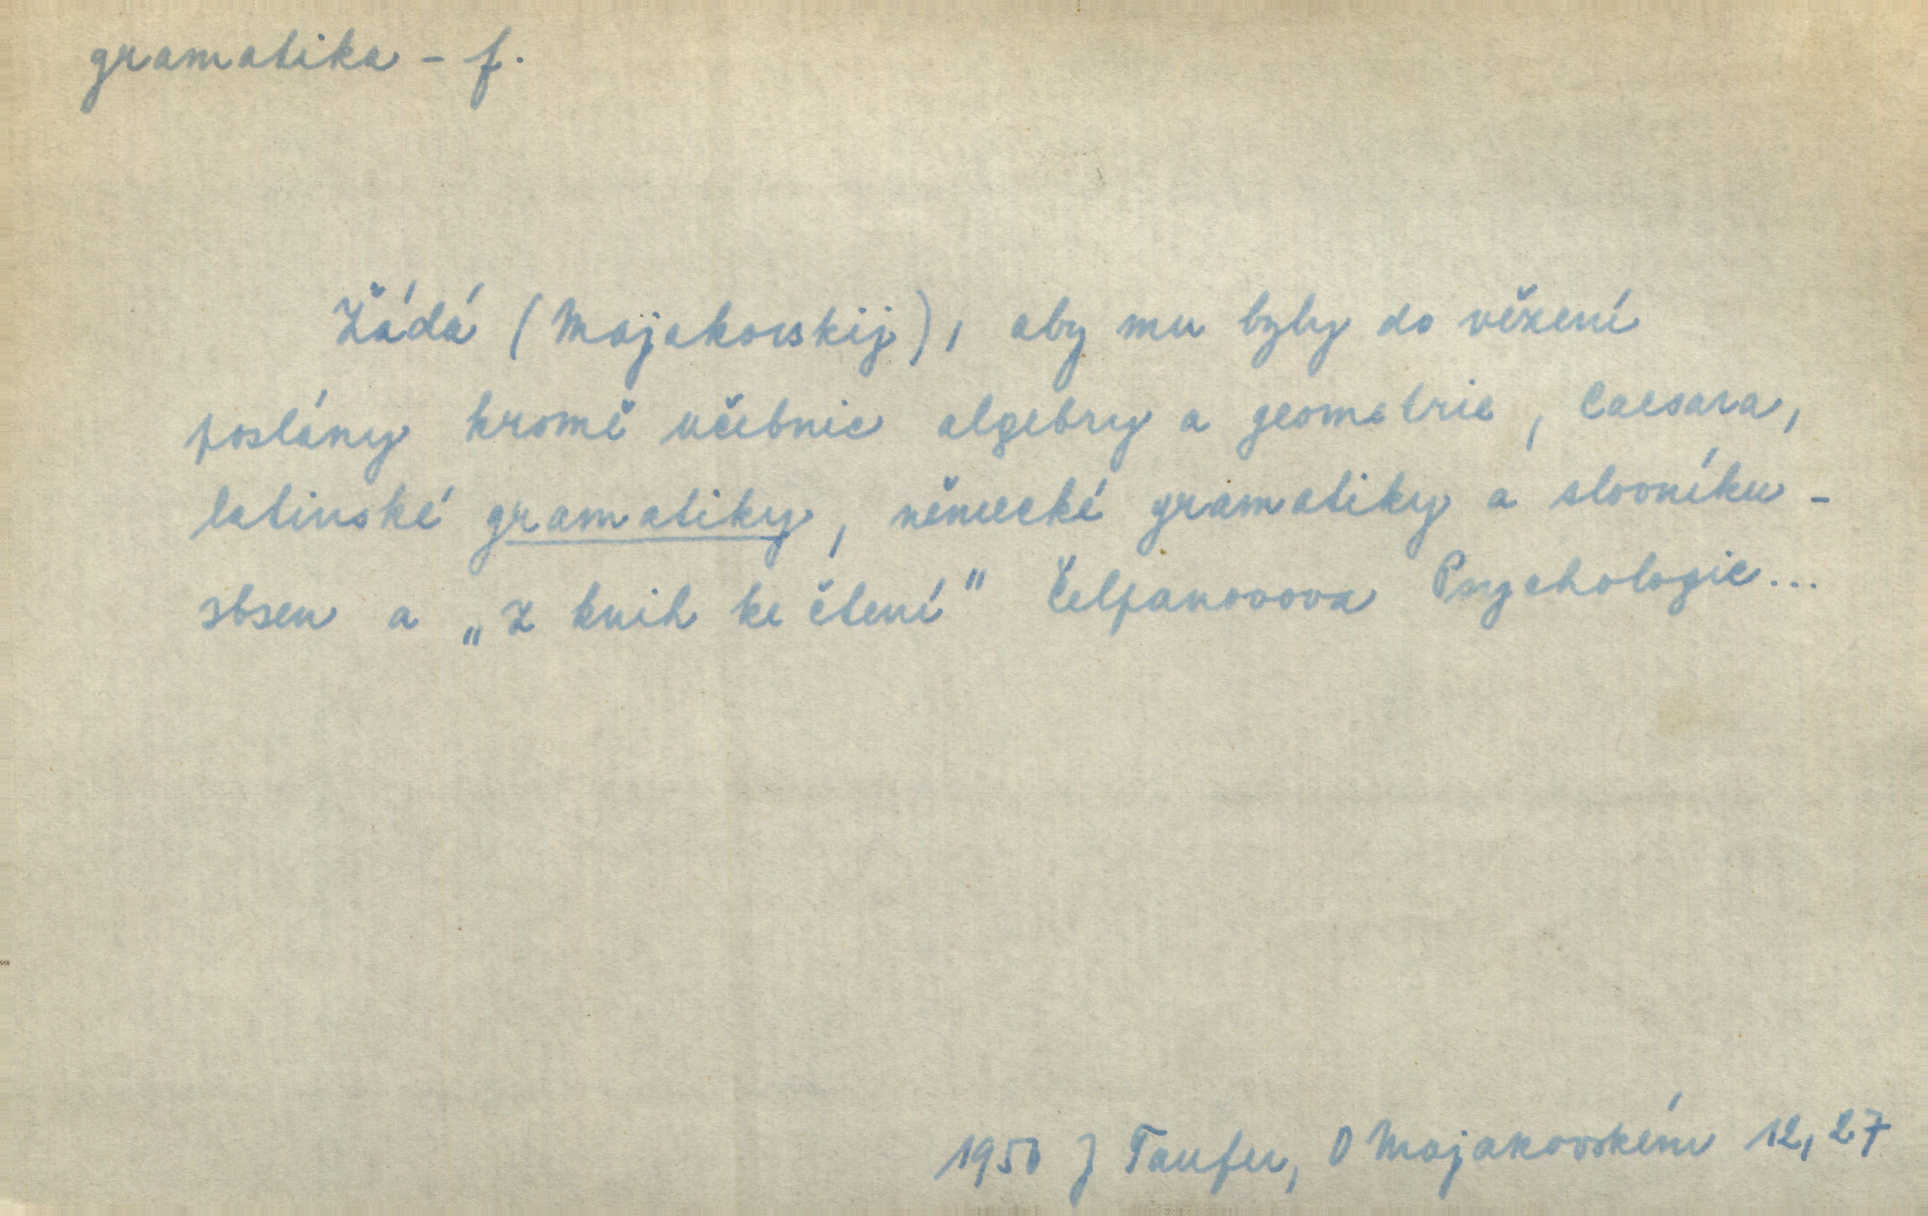 gramatika - f.
Žádá (Majakovskij), aby mu byly do vězení
poslány kromě učebnic algebry a geometrie, Caesara,
latinské gramatiky, německé gramatiky a slovníku -
Ibsen a „z knih ke čtení" Čelpanovova Psychologie...
1950 J Taufer, O Majakovském 12, 27